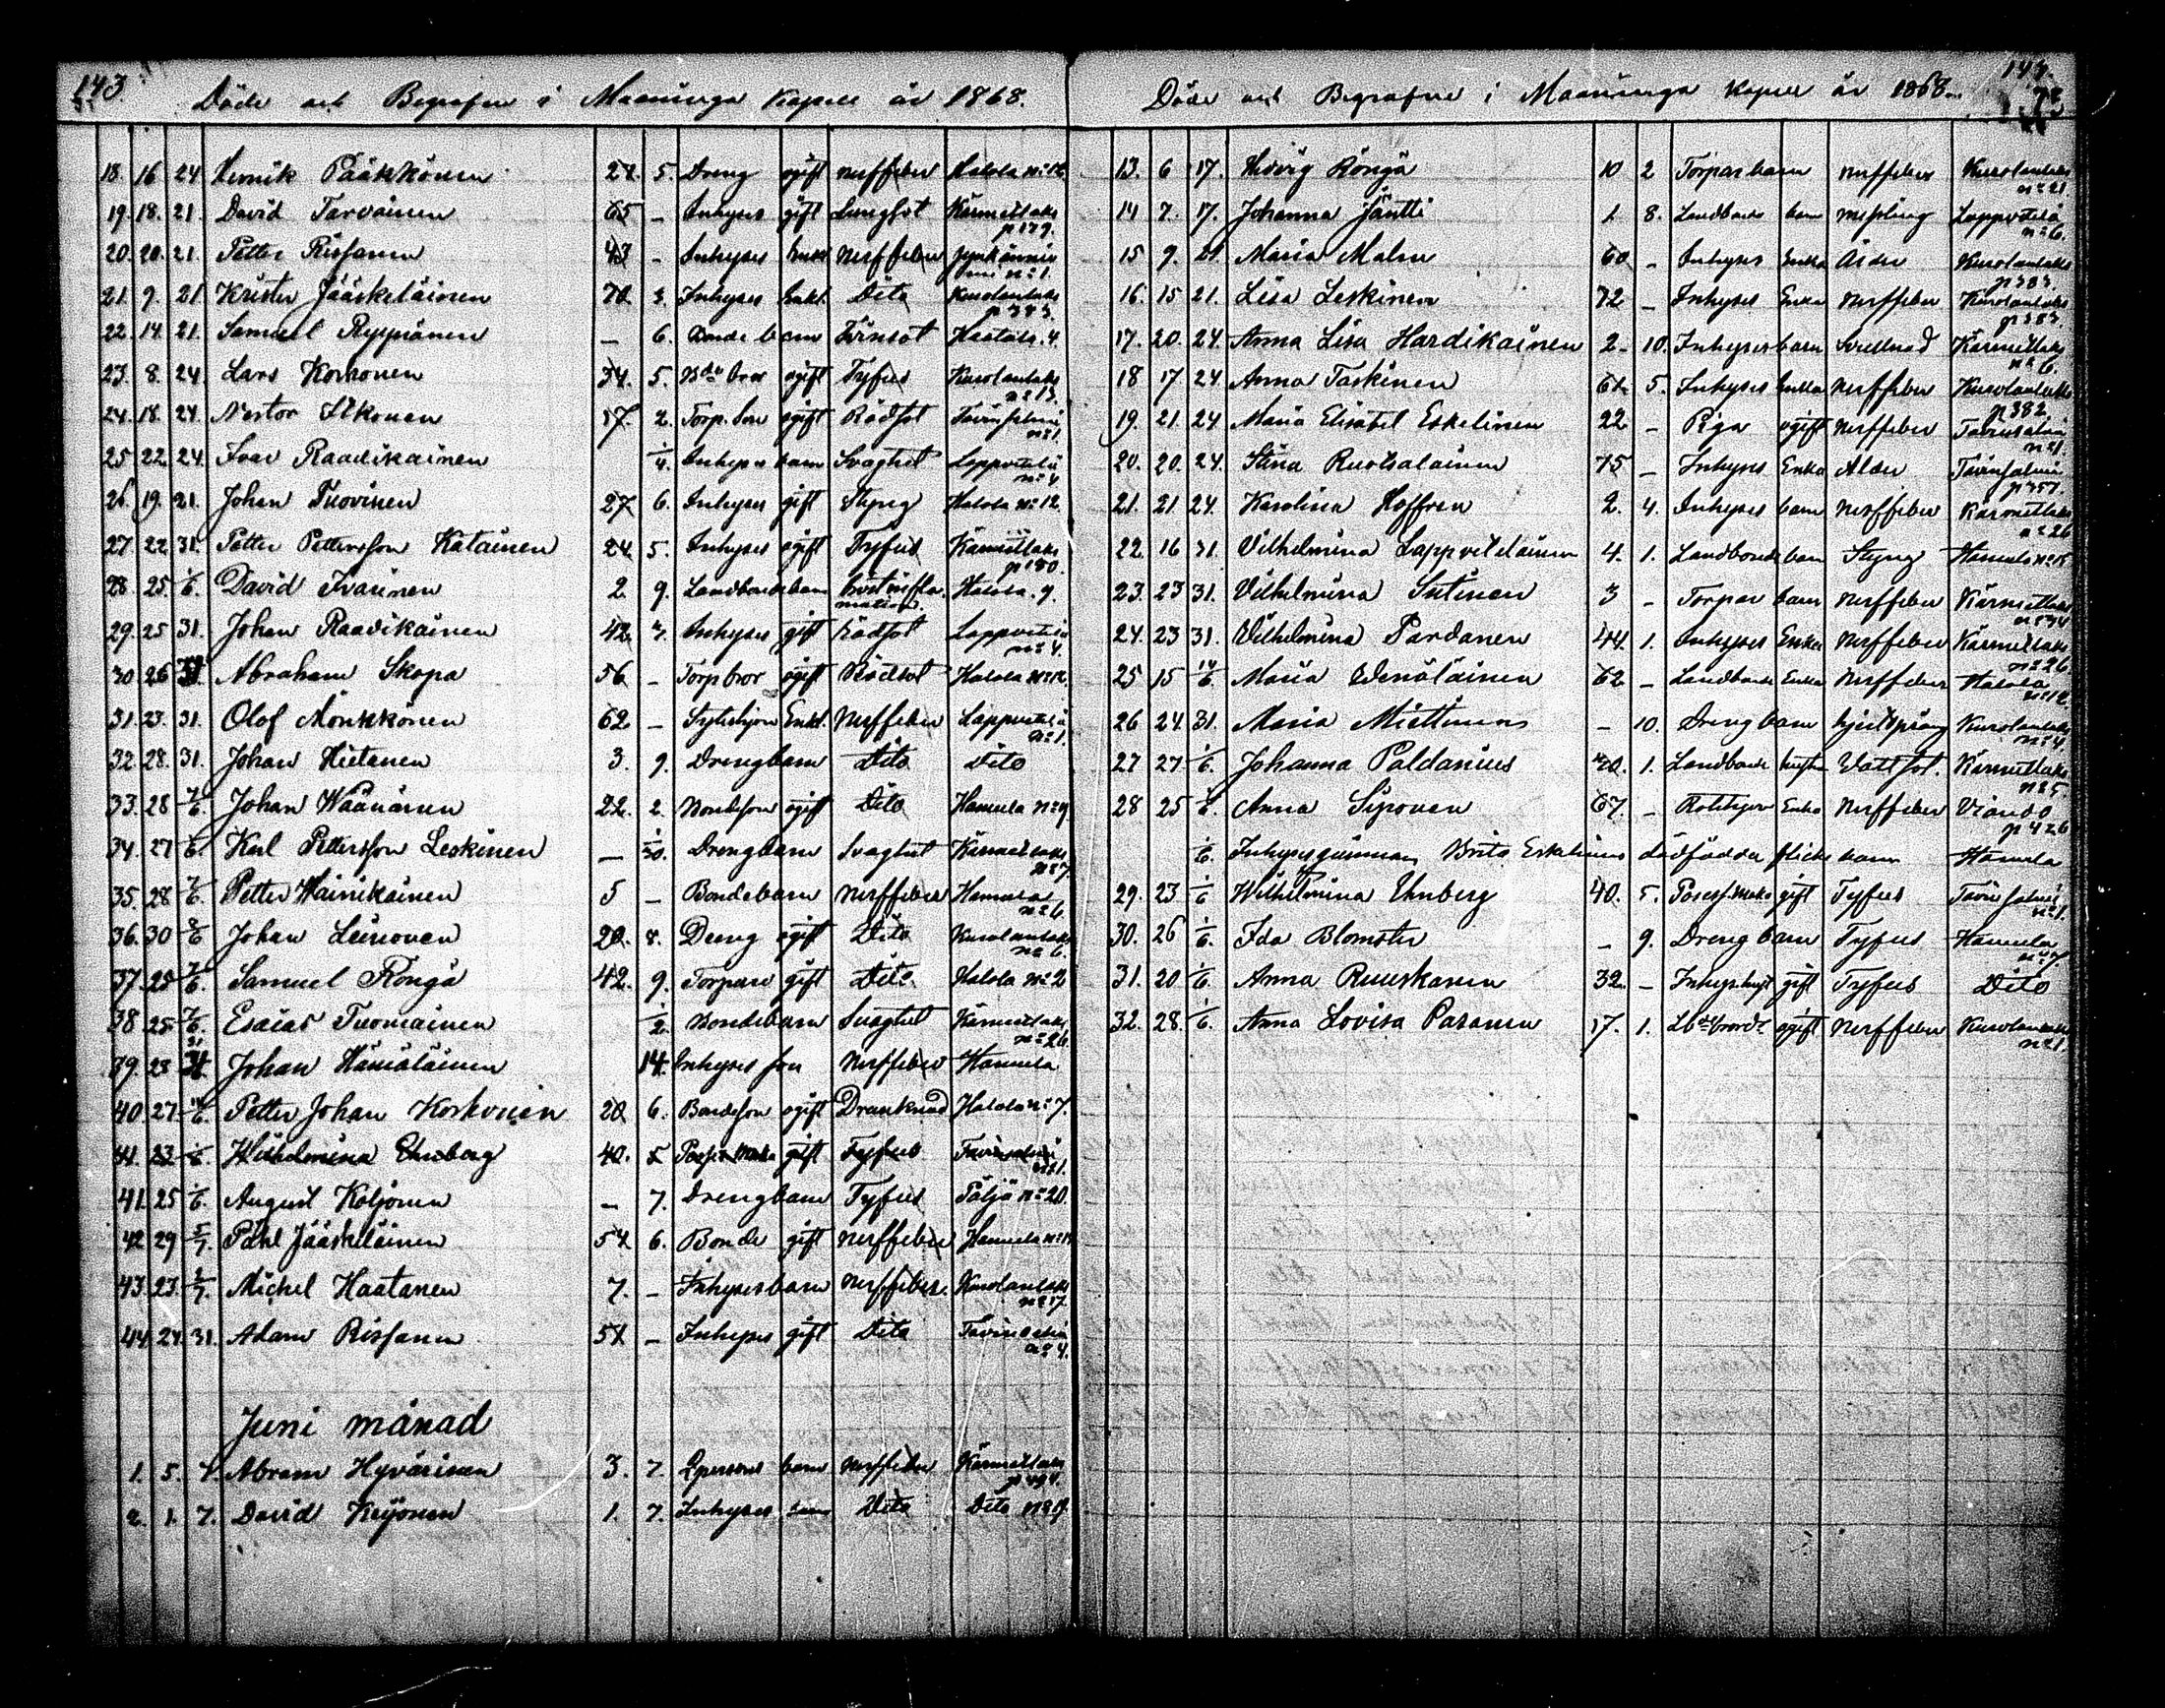 143.
Döde och Begrafne i Maaninga Kapell år 1868.
18. 16 24 Henrik Pääkkönen 27. 5. Dreng gift nerffeber Halola No 12
19. 18. 21. David Tarvainen 65 – Inhyses gift Lungsot Kärmetlaks p 179.
20. 20. 21. Petter Rissanen 43 – Inhyses Enkl nerffeber No 1.
21. 9. 21 Krister Jääskeläinen 70. 3. Inhyses Enkl. Dito Kurolanlaks p 383.
22. 14. 21. Samuel Ryynänen – 6. Bonde barn Haatala. 4.
23. 8. 24. Lars Komonen 34. 5. Bde bror ogift Tyfus Kurolanlaks No 13.
24. 18. 24. Nestor Itkonen 17. 2. Torp. Son ogift Rödsot Tavinsalmi No 1.
25 22. 24. Ivar Raadikainen 1/4. Inhyses barn Svaghet Lappvetelä No 4
26. 19. 21. Johan Tuovinen 27. 6. Inhyses gift Styng Halola No 12.
27. 22. 31. Petter Pettersson Katainen 24. 5. Inhyses ogift Tyfus Kärmetlaks p 180.
28. 25. 1/6. David Ivarinen 2. 9. Landbonde barn bröstinflamation. Halola. 9.
29. 25 31. Johan Raadikainen 42. 7. Inhyses gift Rödsot Lappvetelä No 4.
30 26 31. Abraham Skopa 56. – Torp bror ogift Rödsot Halola No 12.
31. 23. 31. Olof Mönkkönen 62. – Sytnhjon Enkl. Nerffeber Lappvetelä No 1.
32. 28. 31. Johan Hietanen 3. 9. Drengbarn Dito Dito
33. 28 7/6. Johan Wäänänen 22. 2. Bondeson ogift Dito Hamula No 9.
34. 27 1/6. Karl Pettersson Leskinen – 1/30. Drengbarn Svaghet Kärmetlaks No 7.
35. 28 7/6. Petter Wainikainen 5 – Bondebarn Nerffeber Hamula No 6.
36. 30 8/6 Johan Leinonen 20. 8. Dreng ogift Dito Kurolanlaks No 6.
37. 25 7/6. Samuel Rongä 42. 9. Torpare gift Dito. Halola No 2
38 25. 7/6. Esaias Tuomainen 1/2. Bondebarn Svaghet Kärmetlaks No 26.
39. 23 31 Johan Hämäläinen 14. Inhyses son Nerffeber Hamula
40. 27. 14/6. Petter Johan Korhonen 20 6. Bondeson ogift Dranknad Halola No 7.
41. 23 1/6. Wilhelmina Ehnberg 40. 5 gift Tyfus Tavinsalmi No 1.
41. 25 1/6. August Koljonen – 7. Drengbarn Tyfus Pöljä No 20.
42 29 5/7. Påhl Jääskeläinen 54 6. Bonde gift Nerffeber Hamula No 14
43. 23. 2/7. Michel Haatanen 7. – Inhyses barn Nerffeber. Kurolanlaks No 17.
44. 24. 31. Adam Rissanen 51 – Inhyses gift Dito No 4.
Juni månad
1. 5. 7. Abram Hyvärinen 3. 7. barn Nerffeber Kärmetlaks p 494.
2. 1. 7. David Keijonen 1. 7. Inhyses barn Dito Dito No 19.
Döde och Begrafne i Maaninga kapell år 1868.
13. 6 17. Hedvig Rongä 10 2 Torpar barn Nerffeber Kurolanlaks No 21.
14 7. 17. Johanna Jäntti 1 8. Landbonde barn messling Lappvetelä No 6.
15 9. 21. Maria Malm 60 – Inhyses Enka Ålder Kurolanlaks p 383.
16. 15 21. Lisa Leskinen 72 – Inhyses Enka Nerffeber Kurolanlaks p 383.
17. 20. 24. Anna Lisa Hardikainen 2 – 10. Inhyses barn Svullnad Kärmetlaks No 6.
18 17 24. Anna Taskinen 61. 5. Inhyses Enka Nerffeber Kurolanlaks p 382.
19. 21. 24. Maria Elisabet Eskelinen 22 – Piga ogift Nerffeber Tavinsalmi No 1.
20. 20. 24. Stina Ruotsalainen 75 – Inhyses Enka Ålder Tavinsalmi p 357.
21. 21 24. Karolina Hoffren 2. 4. Inhyses barn Nerffeber Kärmetlaks No 26
22. 16 31. Vilhelmina Lappveteläinen 4. 1. Landbonde barn Styng Hamula No 15
23. 23 31. Vilhelmina Sutinen 3 – Torpar barn Nerffeber Kärmetlaks No 34
24. 23 31. Wilhelmina Pardanen 44. 1. Inhyses Enka Nerffeber Kärmetlaks No 26.
25 15 14/6. Maria Wenäläinen 62 – Landbonde Enka Nerffeber Halola No 12.
26 24. 31. Maria Miettinen – 10. Dreng barn Kurolanlaks No 4.
27 27 1/6. Johanna Paldanius 70. 1. Landbonde hustru Vattsot. Kärmetlaks No 5.
28 25 1/6. Anna Siponen 67. – Rotehjon Enka Nerffeber Viando p 426
1/6. Inhysesqvinnans Brita Eskelinens dödfödda flicke barn Hamula
29. 23. 1/6 Wilhelmina Ehnberg 40. 5. gift Tyfus Tavinsalmi No 1.
30. 26 1/6. Ida Blomster – 9. Dreng barn Tyfus Hamula No 7.
31. 20 1/6. Anna Ruuskanen 32. – Inhys. hust gift Tyfus Dito
32. 28. 1/6. Anna Lovisa Pasanen 17. 1. ogift Nerffeber Kurolanlaks No 1.